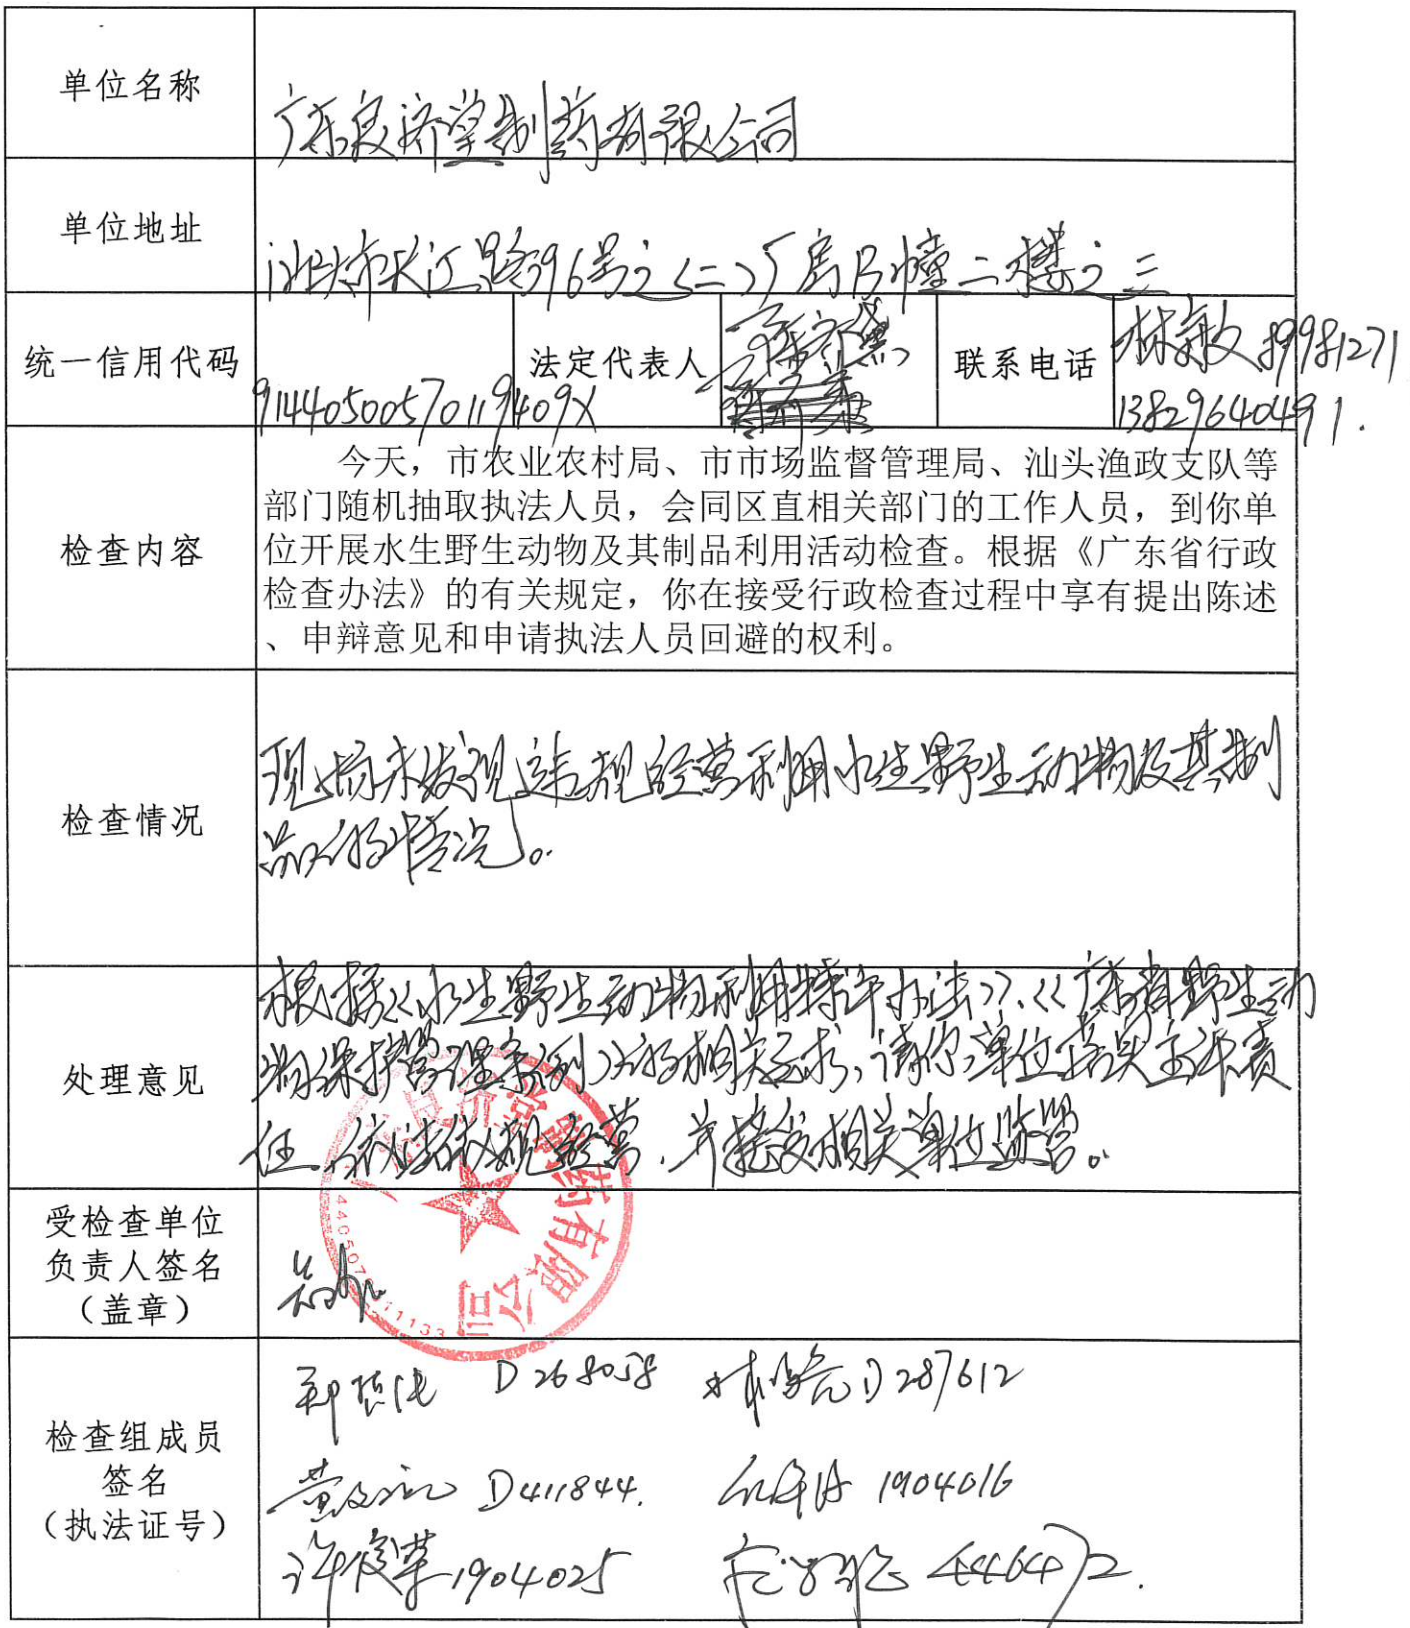 单位名称
广东良济堂制药有限公司
单位地址
汕头市长江路396号之(二)厂房B幢二楼之三
统一信用代码
91440500570119409X
法定代表人
联系电话
89981271
13829640491.
检查内容
今天，市农业农村局、市市场监督管理局、汕头渔政支队等
部门随机抽取执法人员，会同区直相关部门的工作人员，到你单
位开展水生野生动物及其制品利用活动检查。根据《广东省行政
检查办法》的有关规定，你在接受行政检查过程中享有提出陈述
、申辩意见和申请执法人员回避的权利。
检查情况
现场未发现违规经营利用水生野生动物及其制
品的情况。
处理意见
根据《水生野生动物利用特许办法》、《广东省野生动
物保护管理条例》的相关要求，请你单位落实主体责
任，依法依规经营，并接受相关单位监管。
受检查单位
负责人签名
（盖章）
良济堂制药有限公司
检查组成员
签名
（执法证号）
D268058
D287612
D411844.
1904016
许俊荣 1904025
446472.